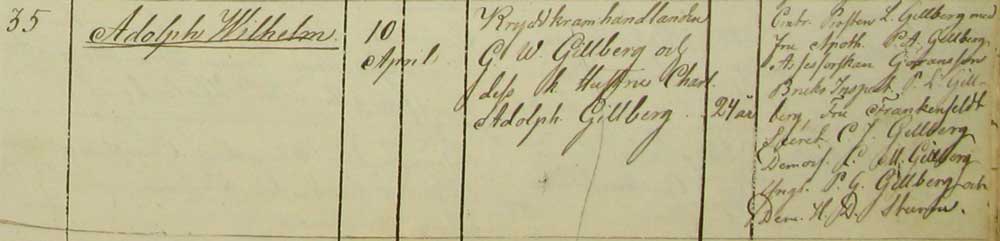 35
Adolph Wilhelm.
10
April.
Kryddkramhandlanden
G. W. Gillberg och
dess k. Hustru Charl.
Adolph. Gillberg.
24 år
Contr. Prosten L. Gillberg med
Fru Apoth. P. A. Gillberg,
Assessorskan Göransson
Bruks Inspect. P. L. Gill-
berg, Fru Frankenfeldt
Secret. C. J. Gillberg
Demois. C. M. Gillberg
Ungk. P. G. Gillberg och
Dem. H. D. Sturm.